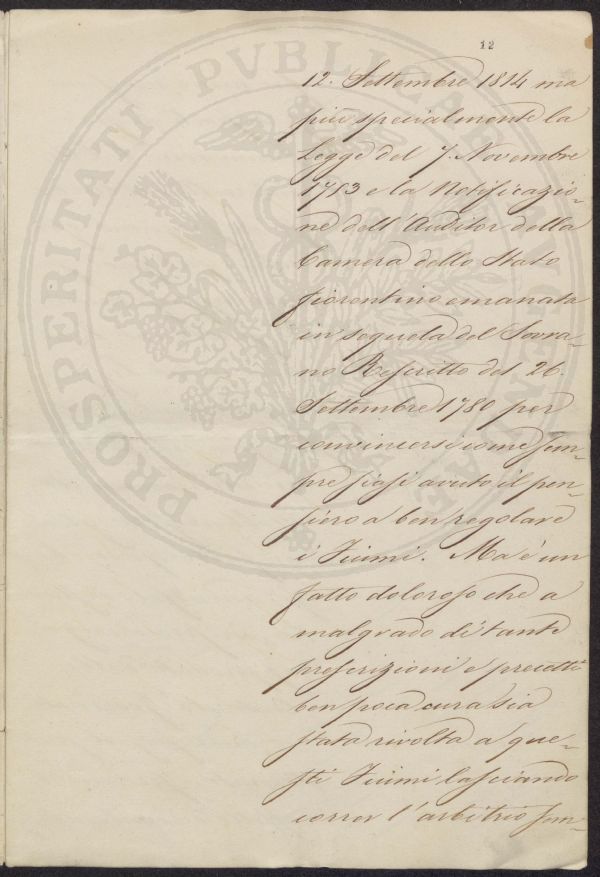 12
12. Settembre 1814 ma
più specialmente la
Legge del 7. Novembre
1783 e la Notificazio-
ne dell'Auditor della
Camera dello Stato
fiorentino emanata
in sequela del Sovra-
no Rescritto del 26.
Settembre 1780 per
convincersi come sem-
pre siasi avuto il pen-
siero a ben regolare
i Fiumi. Ma è un
fatto doloroso che a
malgrado di tante
prescrizioni e precetti
ben poca cura sia
stata rivolta a que-
sti Fiumi lasciando
correr l'arbitrio sem-
PROSPERITATI PVBLICAE AVGENDAE